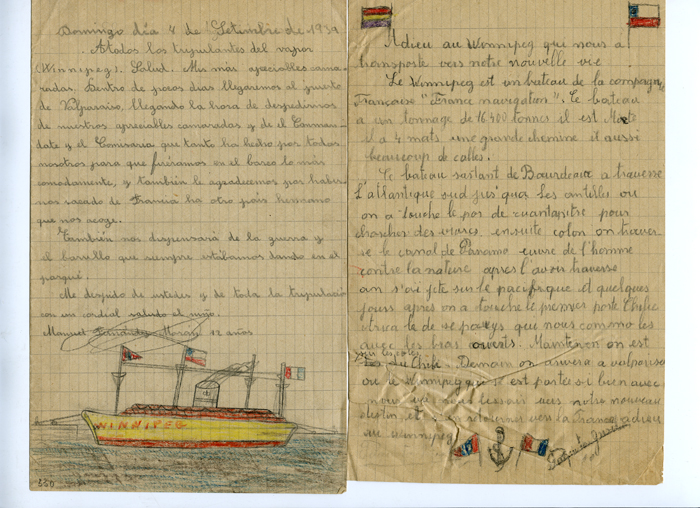 Domingo día 4 de Setiembre de 1939
A todos los tripulantes del vapor
(Winnipeg). Salud. Mis más apreciables cama
radas, Dentro de pocos dias llegaremos al puerto
de Valparaiso, llegando la hora de despedirnos
de nuestros apreciables camaradas y de el Coman
date y el Comisario que tanto ha hecho por todos
nosotros para que fuéramos en el barco lo más
comodamente, y también le agradecemos por haber
nos sacado de Francia ha otro país hermano
que nos acoge.
También nos dispensará de la guerra y
el barullo que siempre estábamos dando en el
parqué.
Me despido de ustedes y de toda la tripulación
con un cordial saludo el niño
Manuel 12 años
WINNIPEG
330
Adieu au Winnipeg qui nous a
transposte vers notre nouvelle vie
Le Winnipeg est un bateau de la compagnie
Française "France navigation". Le bateau
a un tonnage de 16.400 tonnes il est
il a 4 mats une grande chemine il aussi
beaucoup de calles.
Le bateau sartant de Bourdeaux a traverse
L'atlantique sud jus'qua Les antilles ou
on a touche le por de pour
chercher des vivres ensuite colon on traver
se le canal de Panama euvre de l'homme
contre la nature apres l'avoir traverse
an s'are jete sur le pacifique et quelques
jours apres on a touche le premier porte Chile
Arica le de se payes que nous comme les
avec les bras ouverts. Maintenon on est
Chile. Demain on arivera a valparaiso
ou le Winnipeg qui se est porter si bien avec
nous notre nouveau
destin et retournes vers la France adieu
au winnipeg